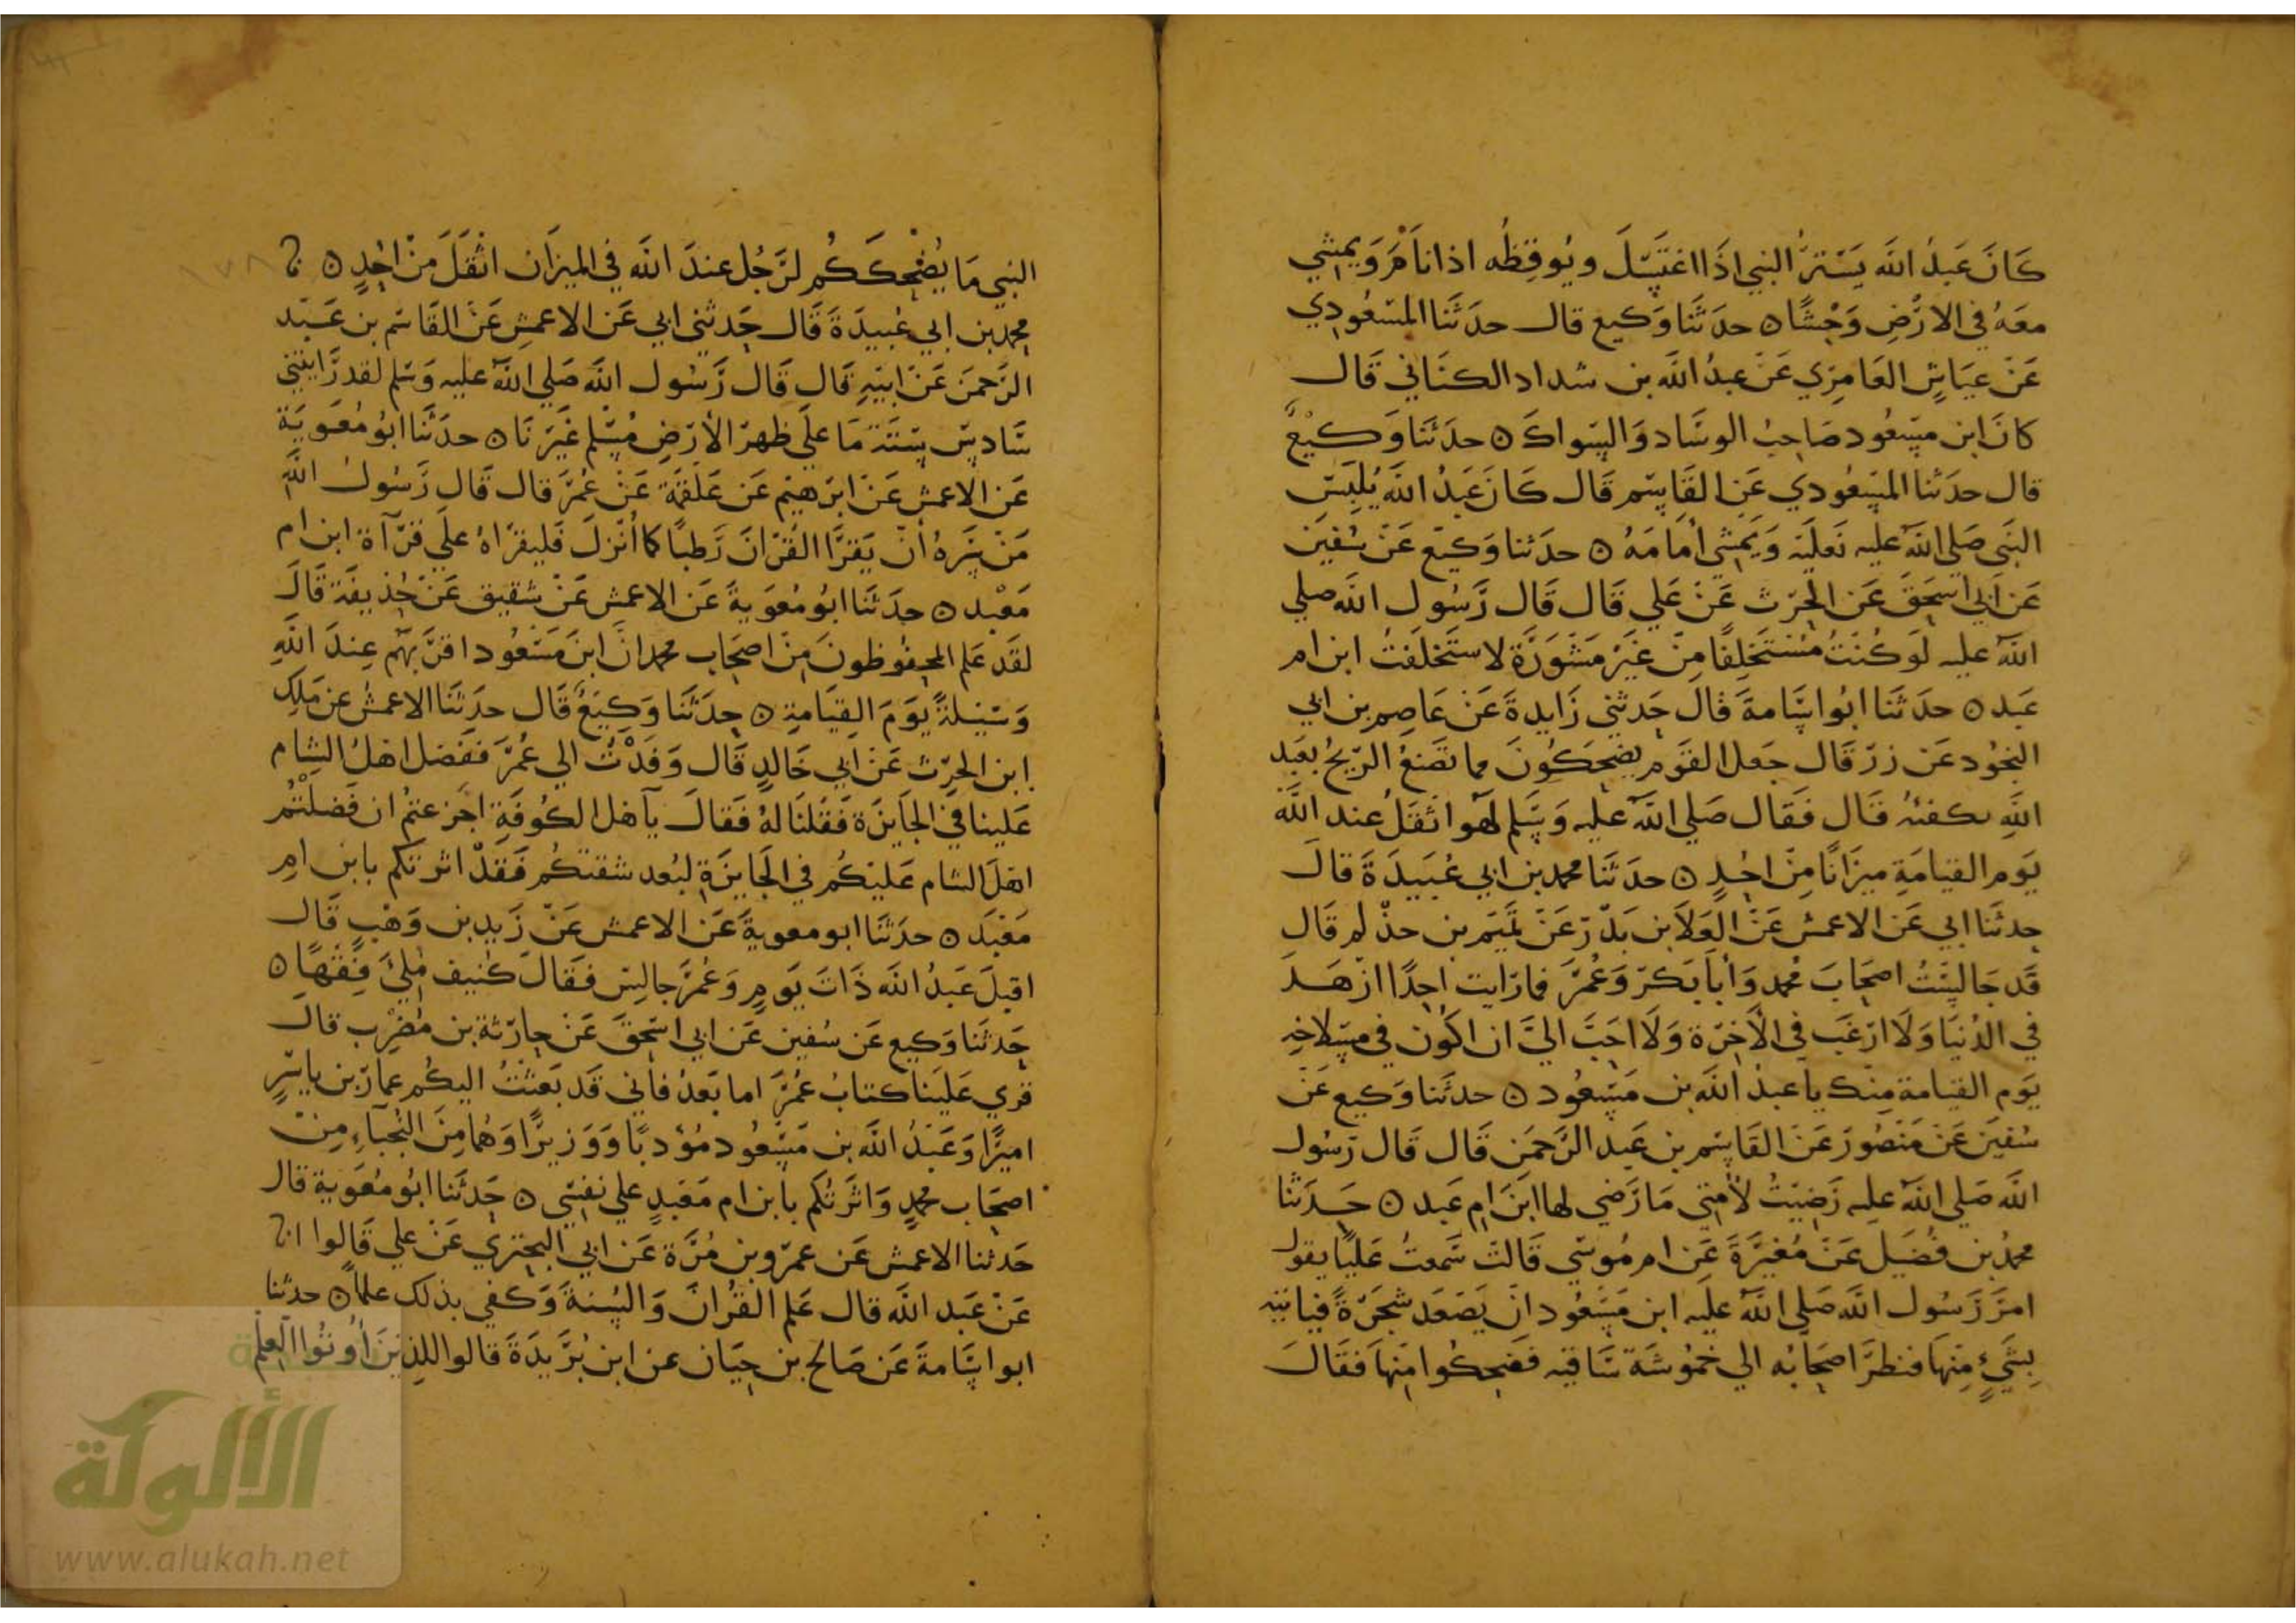 كَانَ عَبدُ اللَّه يَسْترُ النبي اذَا اغتَسَلَ ويُوقِظُه اذا نَامَ وَيمشِي
معَهُ في الارْضِ وَحْشًا ۞ حدَثنَا وَكيع قال حدَثنَا المسْعُودِي
عَنْ عيَاشٍ العَامِرِي عَنْ عبدُ اللَّه بن شداد الكنَاني قَال
كانَ ابن مسْعُود صَاحِبُ الوسَاد وَالسِواكَ ۞ حدَثنَا وَكيْعٌ
قال حدَثنا المسْعُودي عَنِ القَاسِم قَال كَانَ عَبدُ اللَّه يُلبِسُ
النَبي صَلي اللَّه عليه نَعليَه وَيَمشِي أمَامَهُ ۞ حدَثنا وَكيَع عَنْ سُفيَن
عَن أبي اسحَقَ عَن الحرَث عَنْ عَلي قَال قَال رَسُول اللَّه صلي
اللَّه عليه لَو كُنتُ مُسْتَخلِفًا مِنْ غَيْرِ مَشْوَرَةٍ لاستَخلَفتُ ابن ام
عَبد ۞ حدَثنَا ابُو اسَامةَ قال حَدثني زَايدةَ عَنْ عَاصِم بن ابي
النجُود عَن زرّ قَال جَعل القوَم يضحَكوُنَ مما تصَنعُ الرِيحُ بعَبد
اللَّهِ بكفئه قَال فَقال صَلي اللَّه عليه وَسَلم لهَو اثقَلُ عند اللَّه
يَوم القيامَةِ ميزَانًا مِنْ احُدٍ ۞ حدَثنَا محمد بن ابي عُبَيدَةَ قالَ
حدثنَا ابي عَن الاعمش عَنْ العَلَا بن بَدْر عَنْ تَميَم بن حذْلم قَال
قَد جَالسْتُ اصحَابَ محُمد وَأبَا بَكرَ وَعُمَرَ فما رَايت احِدًا ازْهَد
في الدُنيَا وَلَا ارْغَب في الآخِرَة وَلَا احَبَ اليَّ ان اكُون في مسِلاخِه
يَوم القيامة مِنك يا عبدُ اللَّه بن مَسْعُود ۞ حدثنَا وَكيع عَنْ
سُفيَن عَنْ مَنصُورَ عَن القَاسِم بن عَبد الرَحمَن قَال قَال رَسُول
اللَّه صَلي اللَّه عليه رَضيتُ لأمتي مَا رَضي لها ابنَ ام عَبد ۞ حَدَثنا
محمدُ بن فُضَيل عَنْ مُغيرَةَ عَن ام مُوسَي قَالتَ سَمعتُ عَليًا يقول
امرَ رَسُول اللَّه صَلي اللَّه عليَه ابن مَسْعُود انْ يَصَعَد شَجَرَةً فيأتيه
بِشَيٍ مِنهَا فنظرَ اصحَابُه الي حُمُوشَة سَاقيه فضحِكُوا مِنهَا فقَالَ
النبي مَا يُضْحِكَكُم لرَجُل عندَ اللَّه في الميزَان اثْقَلَ مِنْ احُدٍ ۞
محمد بن ابي عُبيدَةَ قَال حَدثني ابي عَن الاعمش عَنْ القَاسِم بن عَبد
الرَحمنَ عَنْ ابيَهِ قَال قَال رَسُول اللَّه صَلي اللَّه عليه وَسَلم لقد رَايتني
سَادِسَ سِتَةٍ مَا علَي ظهر الأرضِ مُسْلم غَيْرَنَا ۞ حدَثنَا ابُو مُعَوِيَة
عَن الاعمش عَنْ ابرَهيم عَن عَلقَمَة عَنْ عُمَرَ قال قَال رَسُولُ اللَّه
مَنْ سَرهُ انْ يَقرَا القُرْانَ رَطبًا كما أُنْزلَ فَليقرَاهُ علَي قرَآة ابن ام
مَعْبد ۞ حدَثنَا ابُو مُعَوِيةَ عَن الاعمش عَنْ شَقيق عَنْ حُذيفَة قَالَ
لقَد عَلم المحفوظونَ مِنْ اصحَاب محمد انَ ابنَ مَسْعُود اقرَبهُم عِندَ اللَّهِ
وَسيْلةً يوَمَ القِيَامةِ ۞ حدَثنَا وَكيعُ قَال حدَثنَا الاعمش عن مَلِك
ابن الحرَث عَنْ ابي خَالدٍ قَال وَفَدْتُ الي عُمَرَ ففَضل اهلُ الشِام
عَلينا في الجَايزَة فَقُلنَا لهُ فَقالَ يآ اهل الكوُفَةِ اجَزعتُم ان فَضلتُم
اهلَ الشام عَليكُم في الجَايزَةِ لبُعد شقتكُم فَقدْ اثرتكم بابن امِ
مَعْبَد ۞ حدَثنَا ابو معوية عَن الاعمش عَنْ زَيد بن وَهْبٍ قَال
اقبلَ عَبدُ اللَّه ذَاتَ يَومٍ وَعُمَرَ جالِسٌ فقَال كنيف مُلِئَ فِقهًا ۞
حَدثنَا وَكيع عَن سُفين عَن ابي اسَحقَ عَنْ حارثة بن مُضَرِب قالَ
قرِي عَليَنا كتابُ عُمَرَ اما بَعدُ فأني قَد بَعثتُ اليكُم عمارَ بن ياسِرٍ
اميرًا وَعَبدُ اللَّه بن مَسْعُود مُؤدبًا وَوَزيرًا وَهُما مِنَ النُجبَآءِ مِنْ
اصحَاب محمدٍ وَاثَرَتُكم بابن ام مَعْبدٍ علي نفسِي ۞ حَدثنَا ابُو مُعَوِية قال
حَدثنا الاعمش عَن عمرو بن مُرَّة عَن ابي البختري عَنْ علي قَالوا
عَنْ عَبد اللَّه قال عَلم القُرانَ وَالسُنةَ وَكفي بذلك علماً ۞ حدثنا
ابو اسَامةَ عَن صَالح بن حِيَان عن ابن بُرَيدَةَ قالوا للذِينَ أُوتُوا العِلْم
الألوكة
www.alukah.net